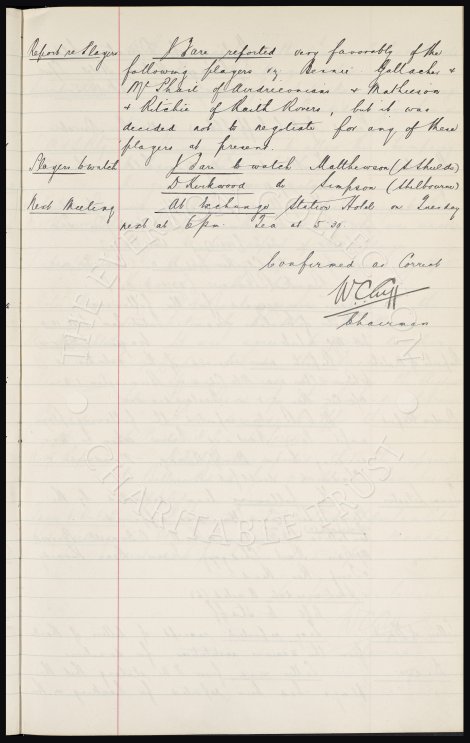 Report re Players J Bare reported very favorably of the
following players vz Bennie Gallacher &
McPhail of Airdrieonians & Mathieson
& Ritchie of Raith Rovers, but it was
decided not to negotiate for any of these
players at present.
Players to watch J Bare to watch Matthewson (S Shields)
D Kirkwood do Simpson (Shelbourne)
Next Meeting At Exchange Station Hotel on Tuesday
next at 6 pm. Tea at 5 30.
Confirmed as Correct
W.C. Cuff
Chairman
THE EVERTON COLLECTION
CHARITABLE TRUST